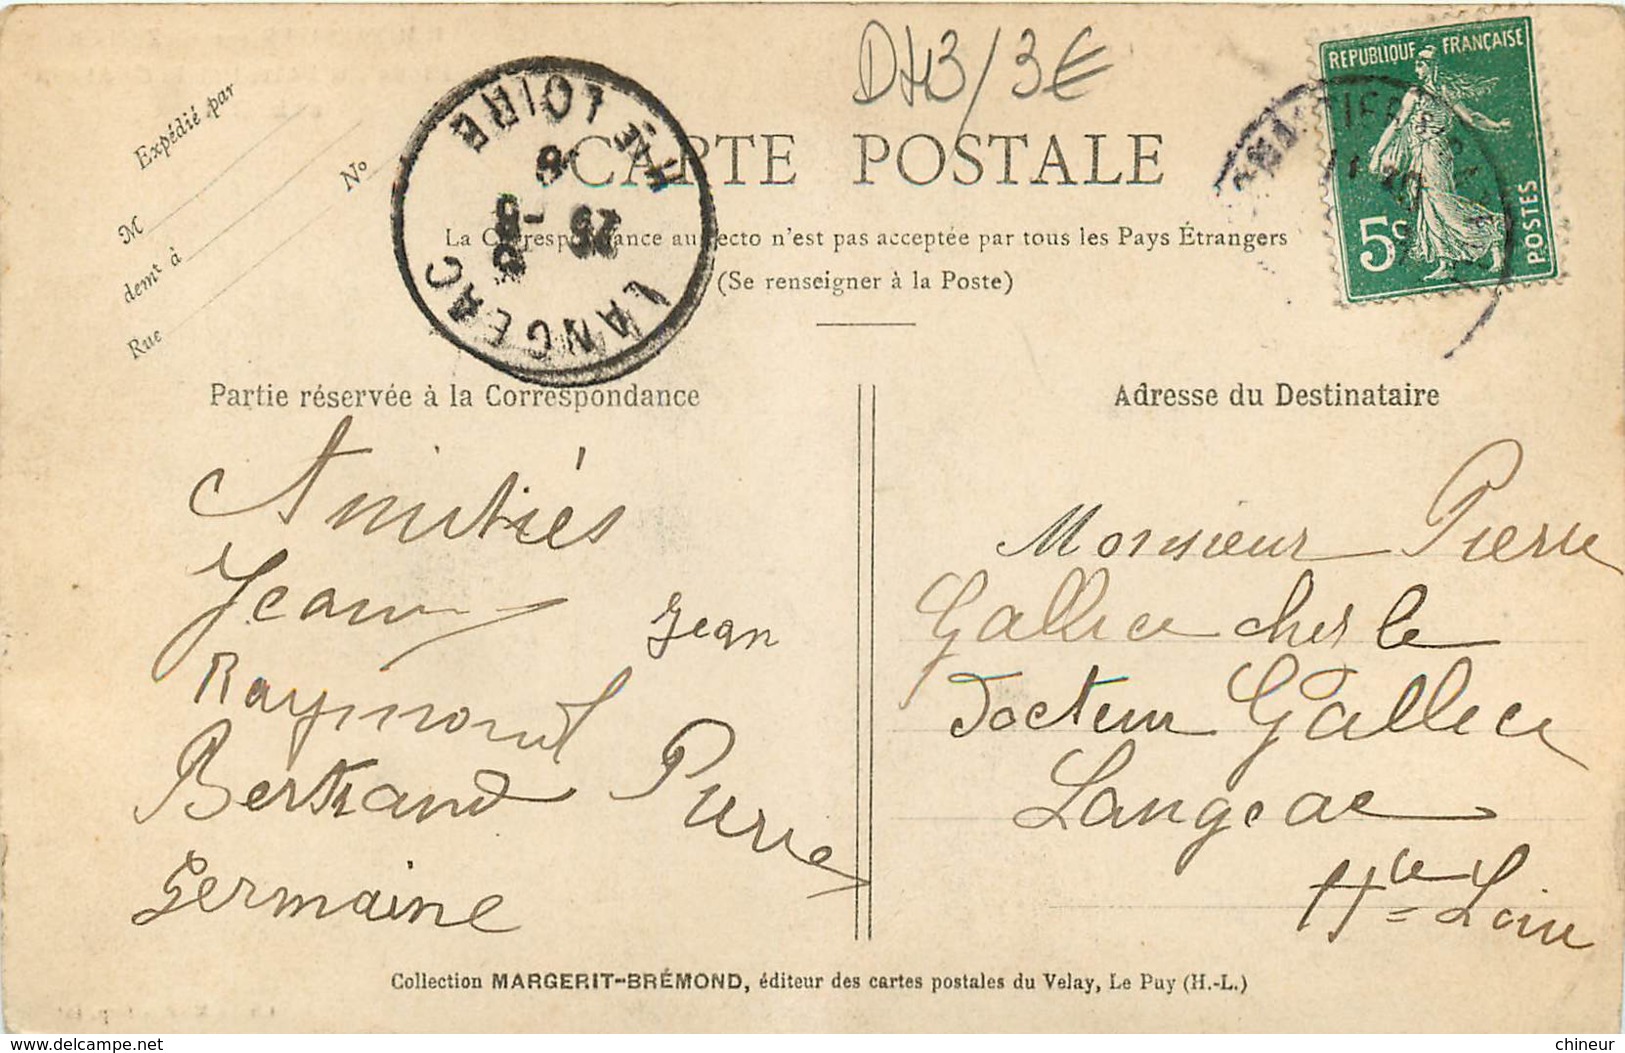 DH3/3€
REPUBLIQUE FRANÇAISE
5c
POSTES
Expédié par
M
demt à
Rue
No
CARTE POSTALE
La Correspondance au recto n'est pas acceptée par tous les Pays Étrangers
(Se renseigner à la Poste)
LANGEAC
HTE LOIRE
Partie réservée à la Correspondance
Adresse du Destinataire
Amitiés
Jean
Jean
Raymond
Bertrand Pierre
Germaine
Monsieur Pierre
Gallice ches le
Docteur Gallice
Langeac
Hte Loire
Collection MARGERIT-BRÉMOND, éditeur des cartes postales du Velay, Le Puy (H.-L.)
https://www.delcampe.net
chineur